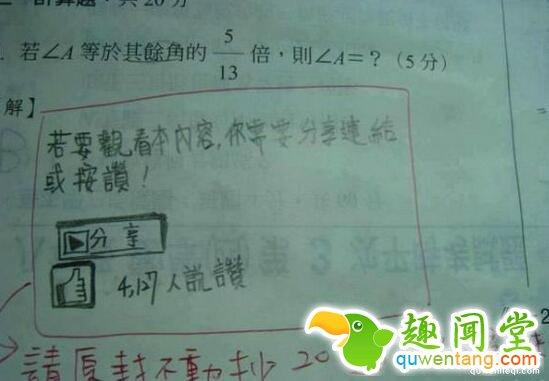 計算題:共20分
若∠A 等於其餘角的 5/13 倍,則∠A=?(5分)
解】
若要觀看本內容,你需要分享連結
或按讚!
分享
4,127人說讚
請原封不動抄20
趣闻堂
quwentang.com